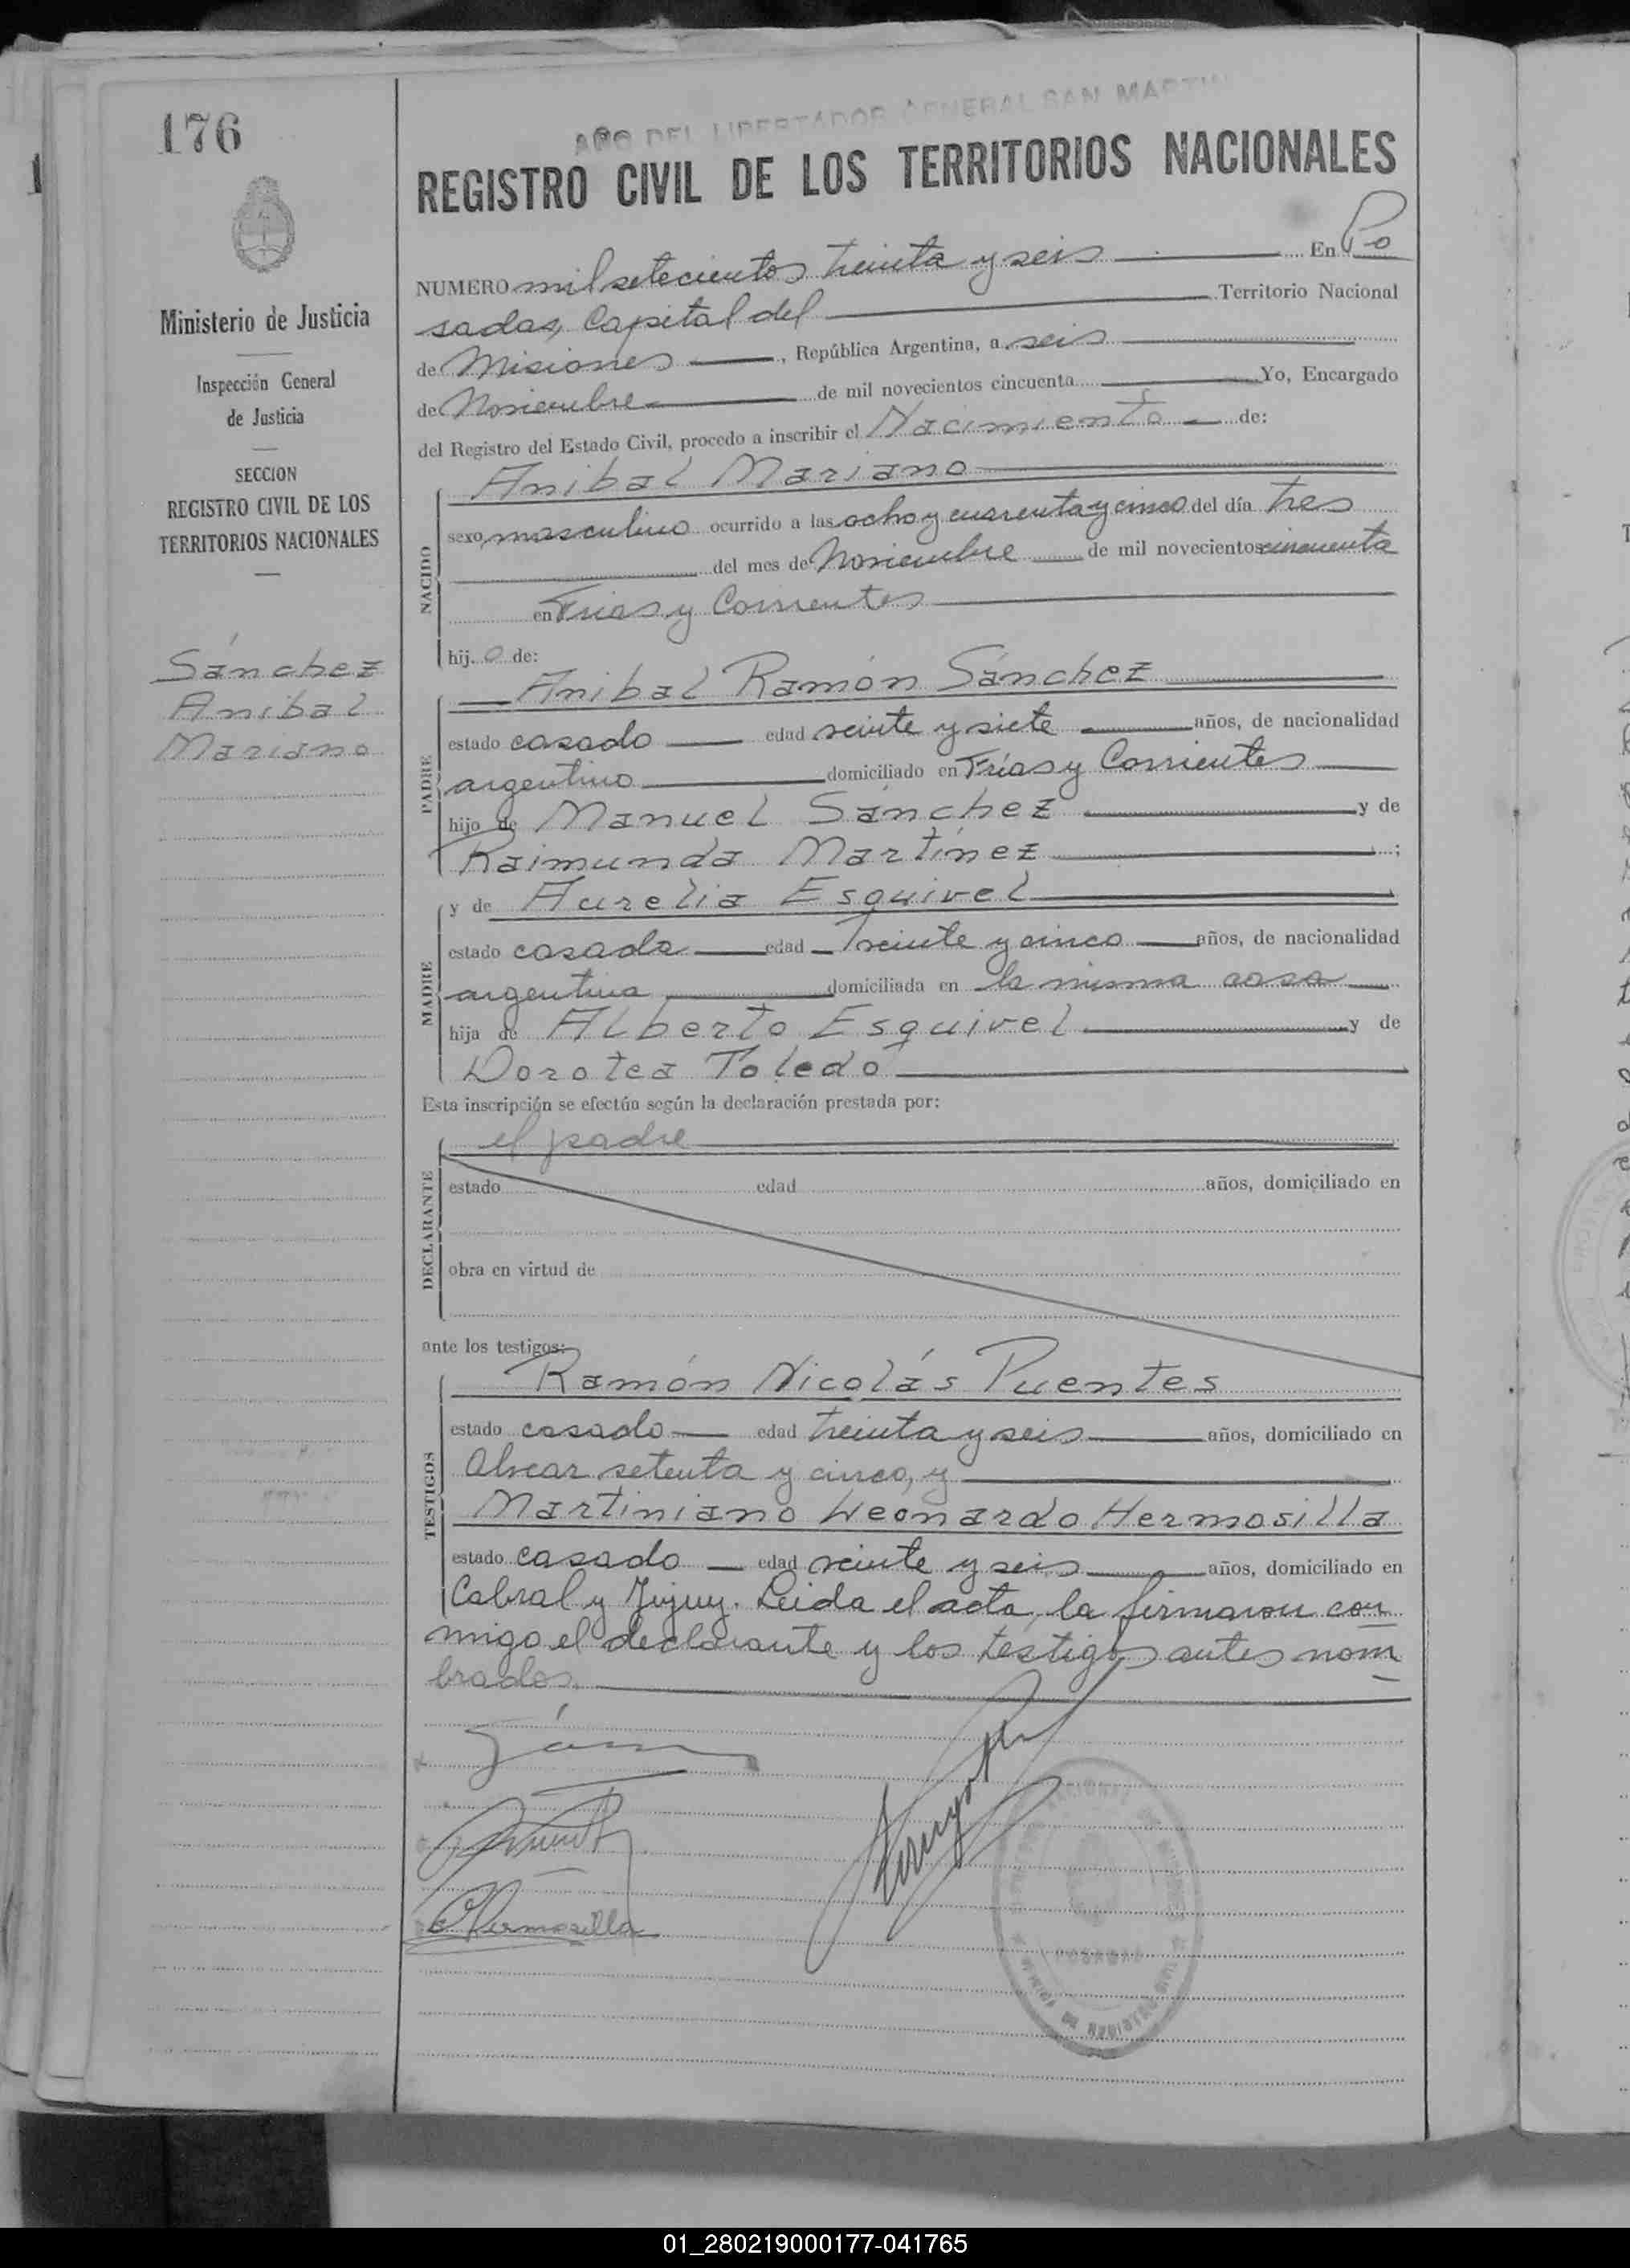 176
AÑO DEL LIBERTADOR GENERAL SAN MARTIN
REGISTRO CIVIL DE LOS TERRITORIOS NACIONALES
Ministerio de Justicia
Inspección General
de Justicia
SECCION
REGISTRO CIVIL DE LOS
TERRITORIOS NACIONALES
Sánchez
Anibal
Mariano
NUMERO mil setecientos treinta y seis En Po
sadas, Capital del Territorio Nacional
de Misiones, República Argentina, a seis
de Noviembre de mil novecientos cincuenta Yo, Encargado
del Registro del Estado Civil, procedo a inscribir el Nacimiento de:
NACIDO
Anibal Mariano
sexo masculino ocurrido a las ocho y cuarenta y cinco del día tres
del mes de Noviembre de mil novecientos cincuenta
en Frias y Corrientes
hijo de:
PADRE
Anibal Ramón Sánchez
estado casado edad veinte y siete años, de nacionalidad
argentino domiciliado en Frías y Corrientes
hijo de Manuel Sánchez y de
Raimunda Martínez ;
MADRE
y de Aurelia Esquivel
estado casada edad veinte y cinco años, de nacionalidad
argentina domiciliada en la misma casa
hija de Alberto Esquivel y de
Dorotea Toledo
Esta inscripción se efectúa según la declaración prestada por:
DECLARANTE
el padre
estado edad años, domiciliado en
obra en virtud de
ante los testigos:
TESTIGOS
Ramón Nicolás Puentes
estado casado edad treinta y seis años, domiciliado en
Alvear setenta y cinco, y
Martiniano Leonardo Hermosilla
estado casado edad veinte y seis años, domiciliado en
Cabral y Jujuy. Leida el acta, la firmaron con
migo el declarante y los testigos antes nom
brados.
Hermosilla
POSADAS
01_280219000177-041765